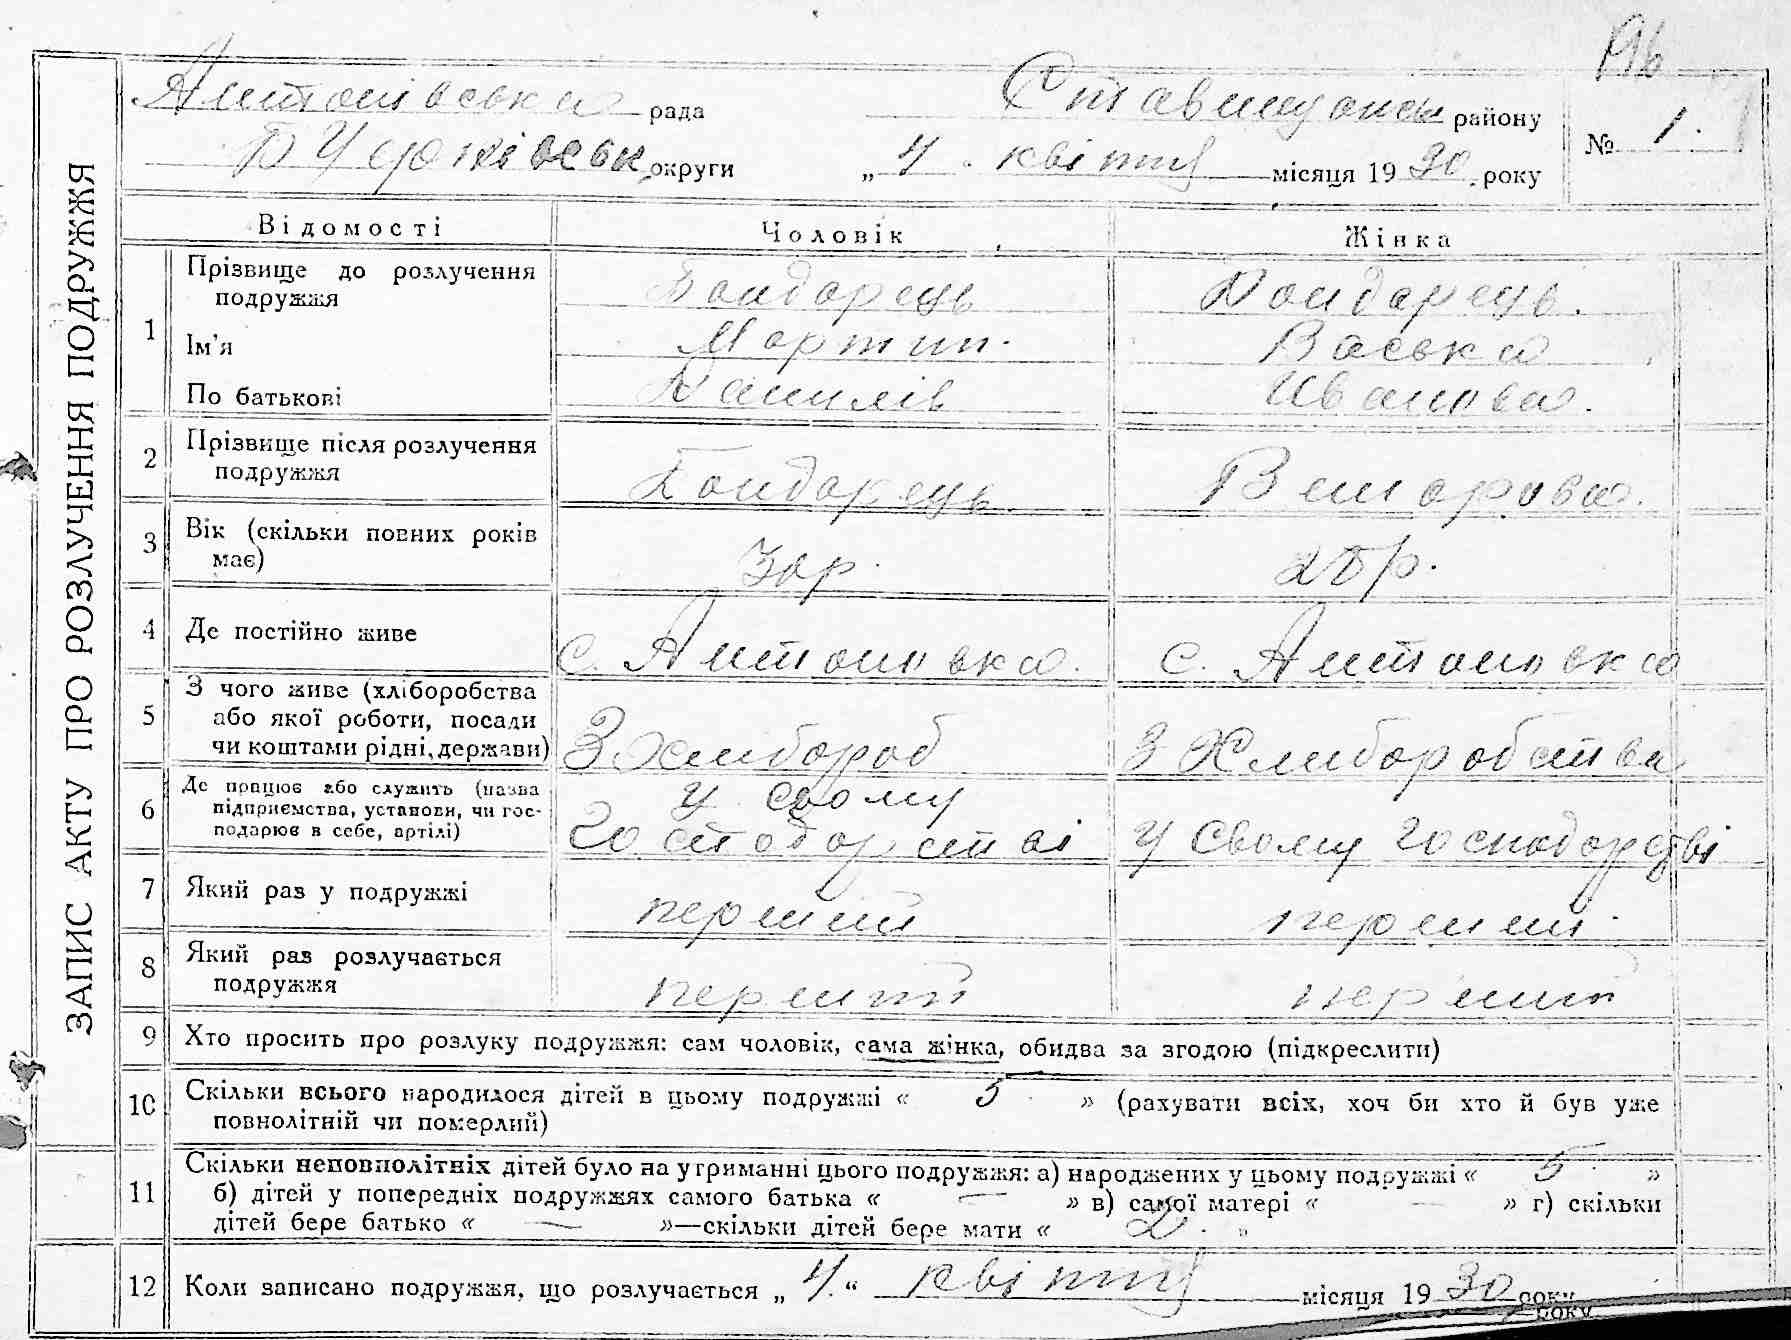 ЗАПИС АКТУ ПРО РОЗЛУЧЕННЯ ПОДРУЖЖЯ
Антонівська рада Ставищанськ району
№ 1.
округи „4. квітня місяця 1930 року
Відомості Чоловік Жінка
1 Прізвище до розлучення подружжя Бондарець Бондарець.
Ім'я Мартин. Васька
По батькові Данилів Иванова.
2 Прізвище після розлучення подружжя Бондарець
3 Вік (скільки повних років має) 30р.
4 Де постійно живе с. Антоновка. с. Антоновка
5 З чого живе (хліборобства
або якої роботи, посади
чи коштами рідні, держави) З Хлибороб З Хлиборобства
6 Де працює або служить (назва
підприємства, установи, чи гос-
подарює в себе, артілі) у свому
господарстві у свому господарстві
7 Який раз у подружжі перший перший.
8 Який раз розлучається
подружжя перший перший
9 Хто просить про розлуку подружжя: сам чоловік, сама жінка, обидва за згодою (підкреслити)
10 Скільки всього народилося дітей в цьому подружжі « 5 » (рахувати всіх, хоч би хто й був уже
повнолітній чи померлий)
11 Скільки неповнолітніх дітей було на утриманні цього подружжя: а) народжених у цьому подружжі « 5 »
б) дітей у попередніх подружжях самого батька « — » в) самої матері « — » г) скільки
дітей бере батько « — »—скільки дітей бере мати « 2. »
12 Коли записано подружжя, що розлучається „4.“ квітня місяця 1930 року
року